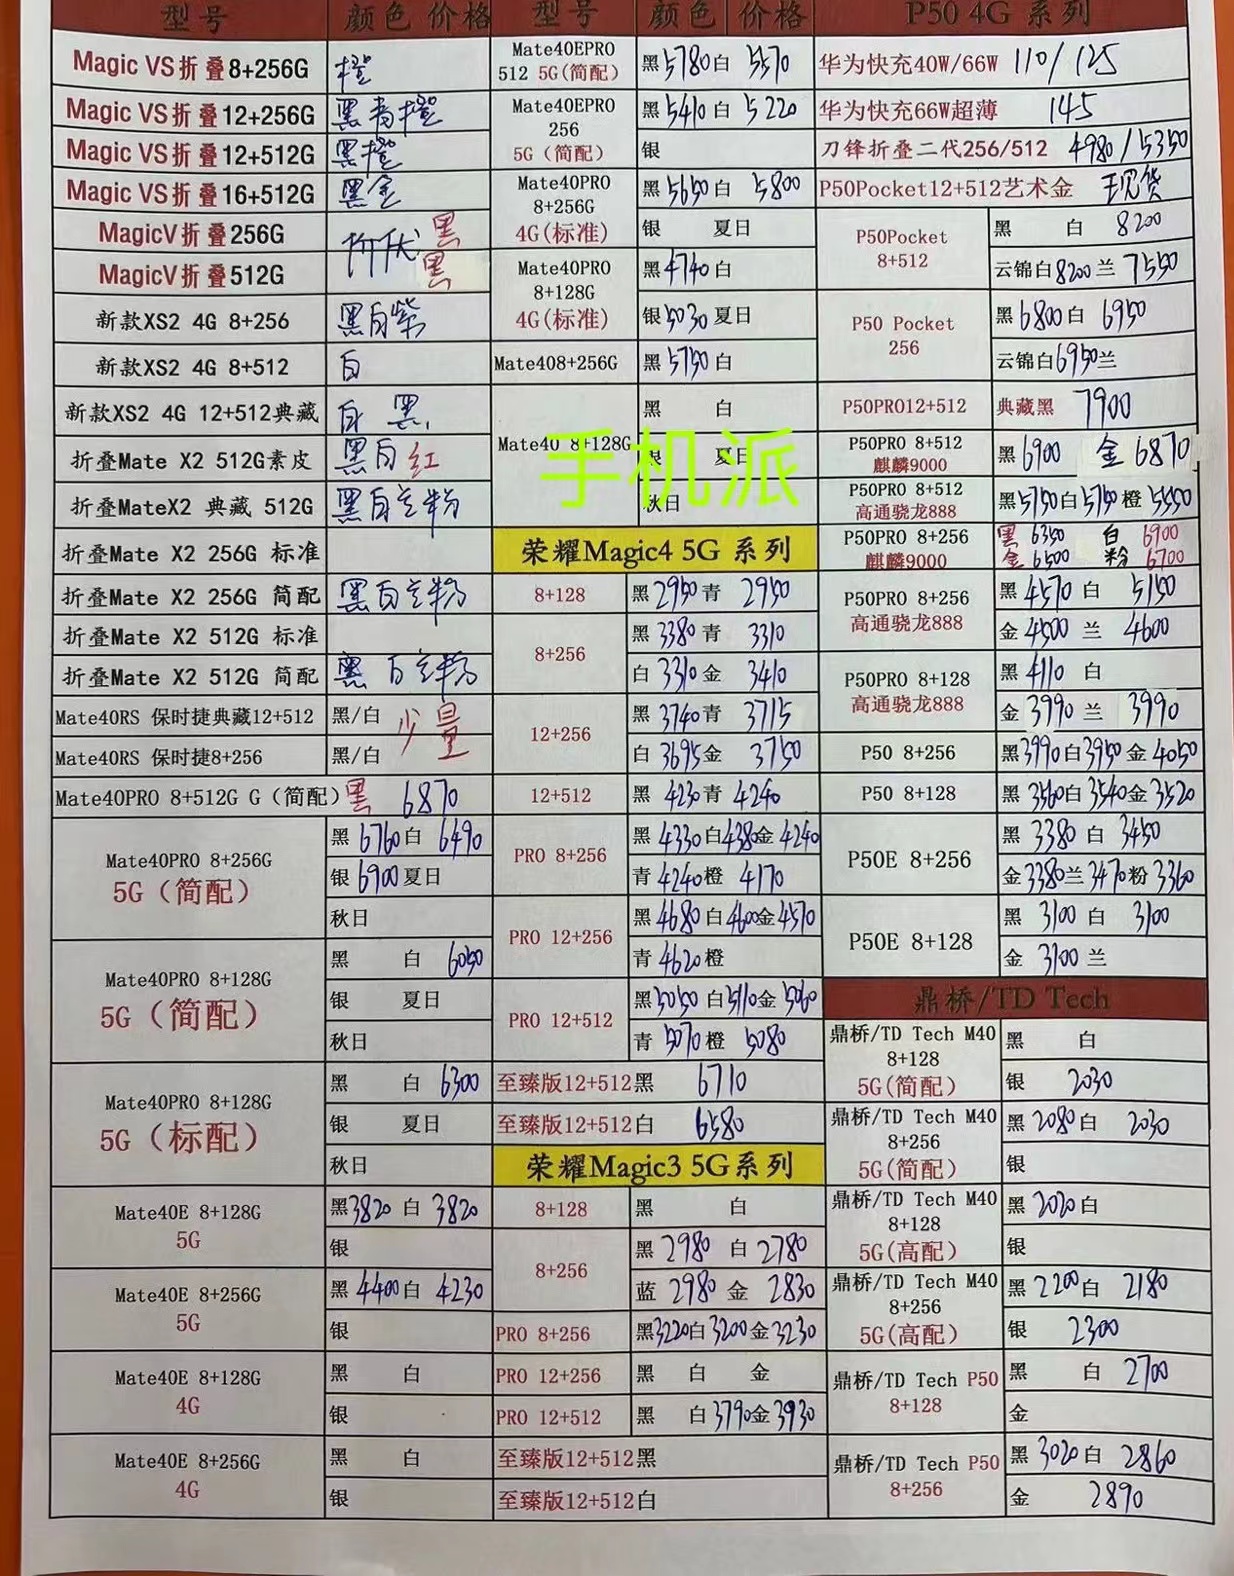 型号 颜色 价格
Magic VS折叠8+256G 橙
Magic VS折叠12+256G 黑青橙
Magic VS折叠12+512G 黑橙
Magic VS折叠16+512G 黑金
MagicV折叠256G 价优 黑
MagicV折叠512G 黑
新款XS2 4G 8+256 黑白紫
新款XS2 4G 8+512 白
新款XS2 4G 12+512典藏 白 黑
折叠Mate X2 512G素皮 黑白红
折叠MateX2 典藏 512G 黑白兰粉
折叠Mate X2 256G 标准
折叠Mate X2 256G 简配 黑白兰粉
折叠Mate X2 512G 标准
折叠Mate X2 512G 简配 黑白兰粉
Mate40RS 保时捷典藏12+512 黑/白 少量
Mate40RS 保时捷8+256 黑/白
Mate40PRO 8+512G G（简配）黑 6870
Mate40PRO 8+256G
5G（简配）
黑 6760 白 6490
银 6900 夏日
秋日
Mate40PRO 8+128G
5G（简配）
黑 白 6050
银 夏日
秋日
Mate40PRO 8+128G
5G（标配）
黑 白 6300
银 夏日
秋日
Mate40E 8+128G
5G
黑3820 白 3820
银
Mate40E 8+256G
5G
黑 4400白 4230
银
Mate40E 8+128G
4G
黑 白
银
Mate40E 8+256G
4G
黑 白
银
型号 颜色 价格
Mate40EPRO
512 5G(简配)
黑5780白 5570
Mate40EPRO
256
5G（简配）
黑5410白 5220
银
Mate40PRO
8+256G
4G(标准)
黑5650白 5800
银 夏日
Mate40PRO
8+128G
4G(标准)
黑4740白
银5030夏日
Mate408+256G 黑5750白
Mate40 8+128G
黑 白
银 夏日
秋日
手机派
荣耀Magic4 5G 系列
8+128 黑2950青 2950
8+256
黑 3380青 3310
白 3310金 3410
12+256
黑3740青 3715
白 3695金 3750
12+512 黑 4230青 4240
PRO 8+256
黑 4330白4380金 4240
青 4240橙 4170
PRO 12+256
黑 4680白4600金4570
青 4620橙
PRO 12+512
黑5050 白5110金 5060
青 5070橙 5080
至臻版12+512黑 6710
至臻版12+512白 6580
荣耀Magic3 5G系列
8+128 黑 白
8+256
黑 2980 白2780
蓝 2980 金 2830
PRO 8+256 黑3220白3200金3230
PRO 12+256 黑 白 金
PRO 12+512 黑 白3790金3930
至臻版12+512黑
至臻版12+512白
P50 4G 系列
华为快充40W/66W 110/125
华为快充66W超薄 145
刀锋折叠二代256/512 4980/5350
P50Pocket12+512艺术金 现货
P50Pocket
8+512
黑 白 8200
云锦白8200兰 7550
P50 Pocket
256
黑6800白 6950
云锦白6950兰
P50PRO12+512 典藏黑 7900
P50PRO 8+512
麒麟9000
黑6900 金 6870
P50PRO 8+512
高通骁龙888
黑5750白5750橙 5550
P50PRO 8+256
麒麟9000
黑 6350 白 6900
金 6500 粉 6700
P50PRO 8+256
高通骁龙888
黑 4570 白 5150
金 4500 兰 4600
P50PRO 8+128
高通骁龙888
黑4110 白
金 3990 兰 3990
P50 8+256 黑3990白3950金4050
P50 8+128 黑 3560白 3540金3520
P50E 8+256
黑 3380 白 3450
金3380兰3470粉3360
P50E 8+128
黑 3100 白 3100
金 3100 兰
鼎桥/TD Tech
鼎桥/TD Tech M40
8+128
5G(简配)
黑 白
银 2030
鼎桥/TD Tech M40
8+256
5G(简配)
黑 2080白 2030
银
鼎桥/TD Tech M40
8+128
5G(高配)
黑2020白
银
鼎桥/TD Tech M40
8+256
5G(高配)
黑2200白 2180
银 2300
鼎桥/TD Tech P50
8+128
黑 白 2700
金
鼎桥/TD Tech P50
8+256
黑 3020白 2860
金 2890